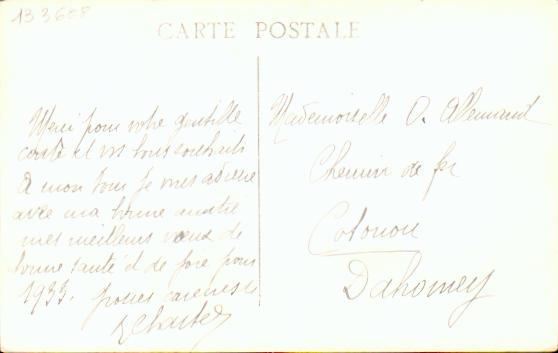 133608
CARTE POSTALE
Merci pour votre gentille
carte et vos bons souhaits
A mon tour je vous adresse
avec ma bonne
mes meilleurs vœux de
bonne santé et de joie pour
1933. Grosses caresses de
Mademoiselle O. Allemand
Chemin de fer
Cotonou
Dahomey